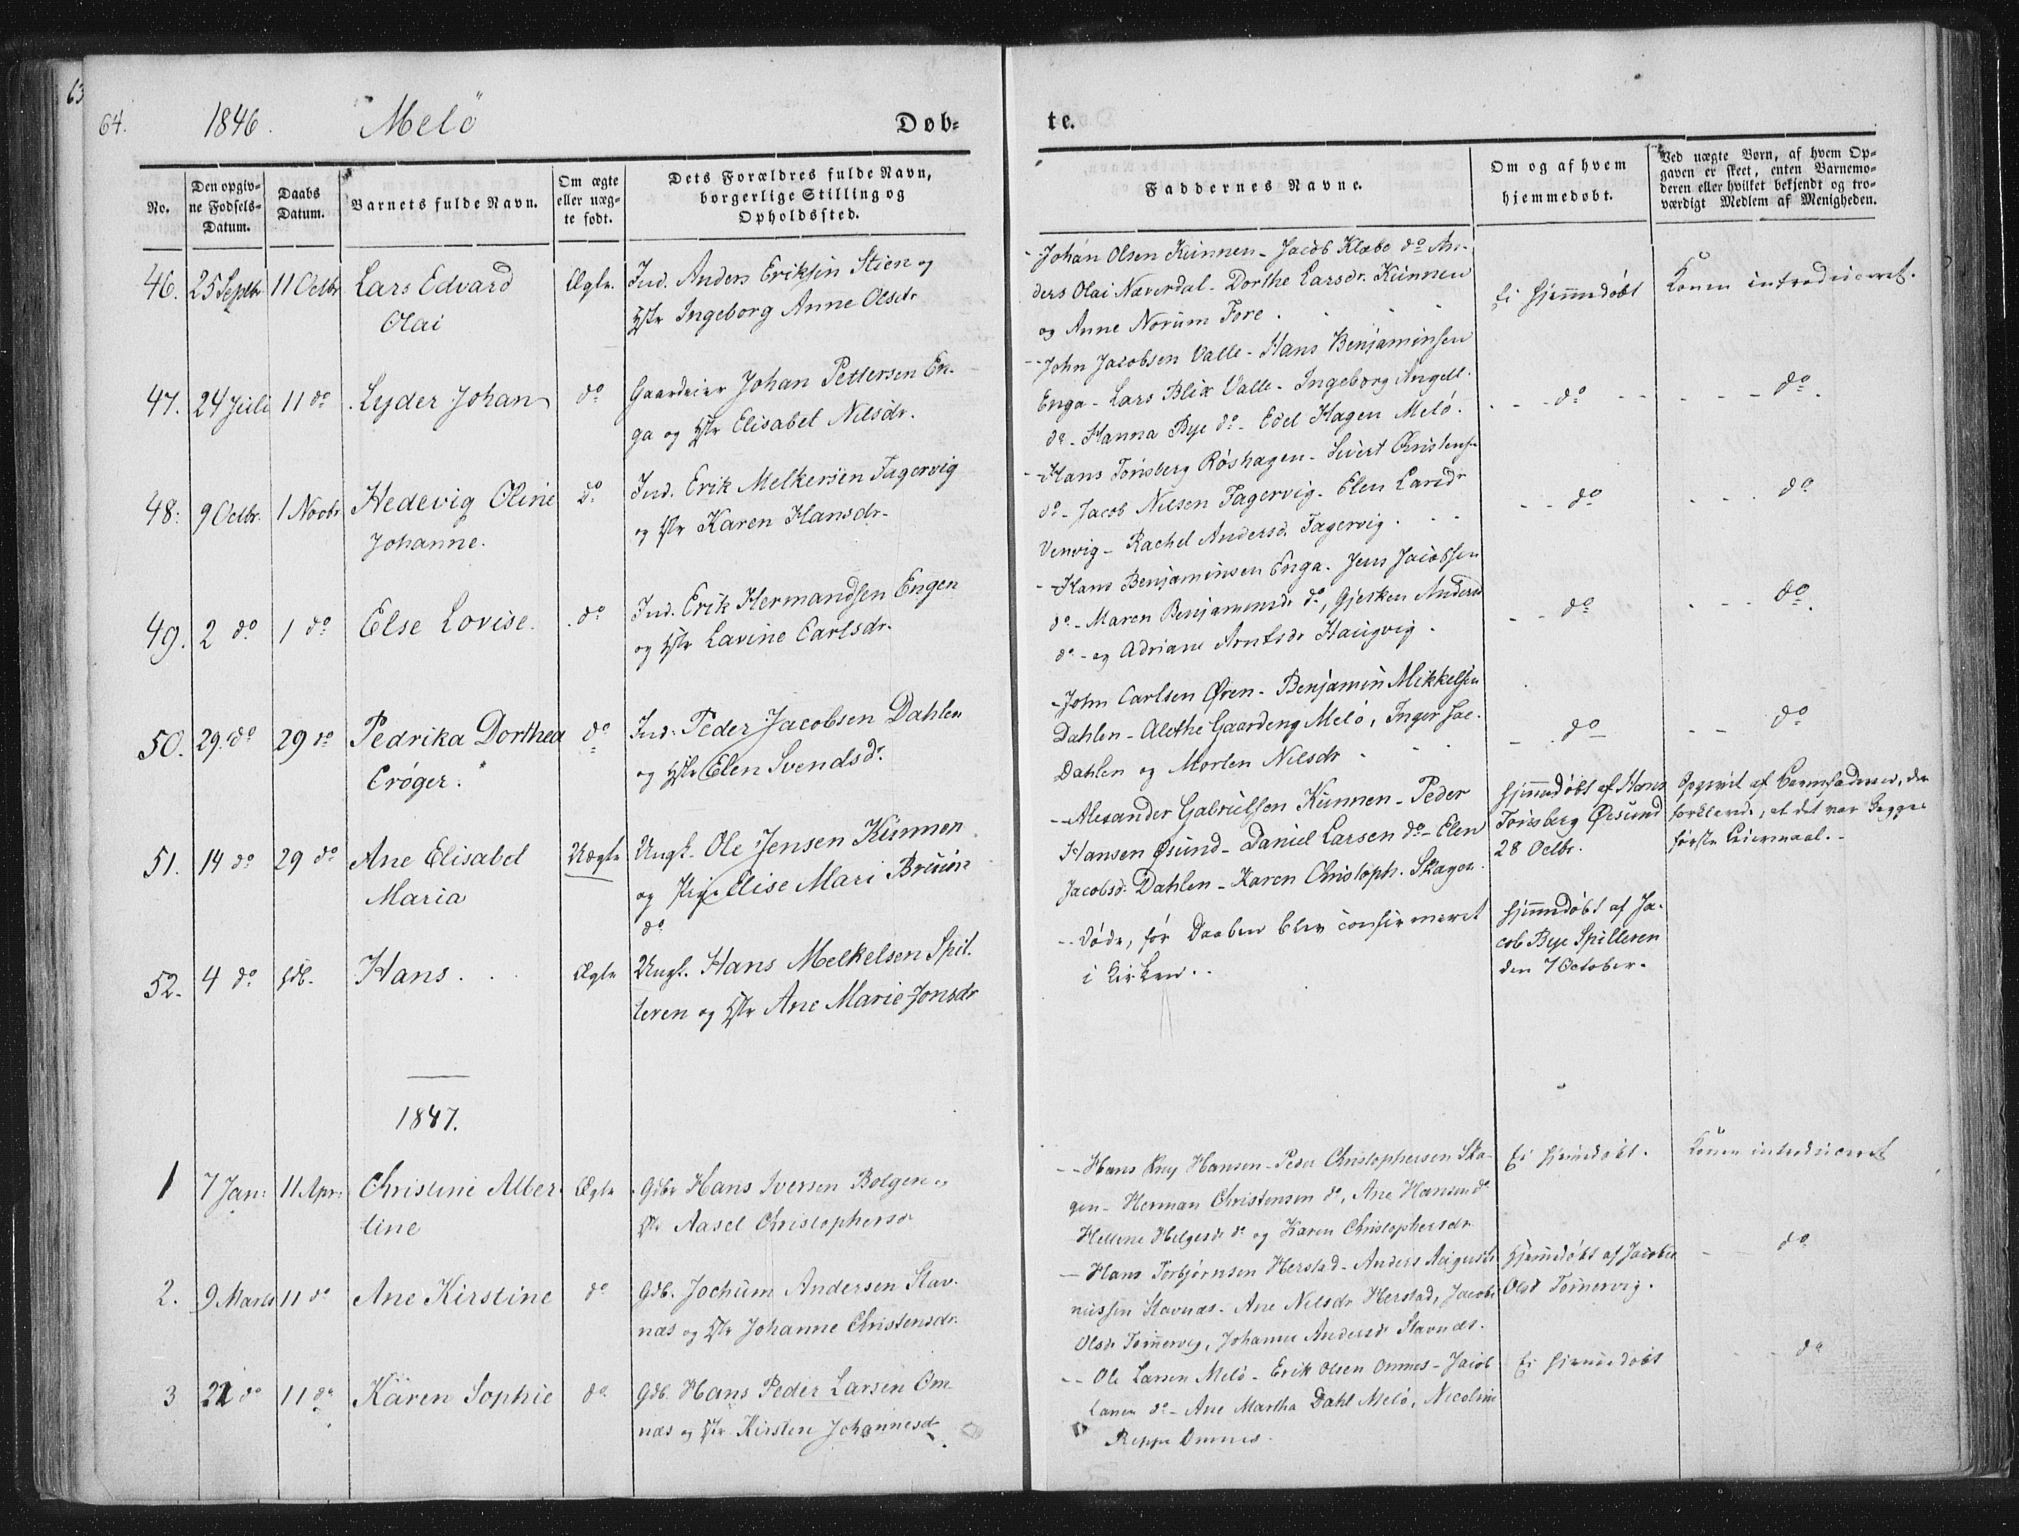 63
64.
1846. Melö
Døb-
te.
No.
Den opgiv-
ne Fødsels-
Datum.
Daabs
Datum.
Barnets fulde Navn.
Om ægte
eller uæg-
te født.
Dets Forældres fulde Navn,
borgerlige Stilling og
Opholdssted.
Faddernes Navne.
Om og af hvem
hjemmedøbt.
Ved uægte Børn, af hvem Op-
gaven er skeet, enten Barnemo-
deren eller hvilket bekjendt og tro-
værdigt Medlem af Menigheden.
46. 25 Septbr 11 Octbr Lars Edvard
Olai
Ægte.
Ind. Anders Eriksen Stien og
Hstr Ingeborg Anne Olsdr
- Johan Olsen Kunnen - Jacob Klæbo do An-
ders Olai Næverdal - Dorthe Larsdr. Kunnen
og Anne Norum Fore.
Ei hjemmedöbt
Konen introduceret.
47. 24 Juli 11 do Lyder Johan
do
Gaardeier Johan Pettersen En-
ga og Hstr Elisabet Nilsdr.
- John Jacobsen Valle - Hans Benjaminsen
Enga - Lars Blix Valle - Ingeborg Angell
do - Hanna Bye do - Edel Hagen Melö.
do
do.
48. 9 Octbr. 1 Novbr Hedevig Oline
Johanne.
do
Ind. Erik Melkersen Fagervig
og Hstr Karen Hansdr.
- Hans Tönsberg Röshagen - Sivert Christens.
do - Jacob Nilsen Fagervig - Elen Larsdr
Venvig - Rachel Andersd. Fagervig.
do
do
49. 2 do 1 do Else Lovise.
do
Ind. Erik Hermandsen Engen
og Hstr Lavine Carlsdr.
- Hans Benjaminsen Enga. Jens Jacobsen
do - Maren Benjaminsdr do, Gjertken Andersd
do - og Adriane Arntsdr Haugvig.
do
do.
50. 29. do 29 do Pedrika Dorthea
Cröger.
do
Ind. Peder Jacobsen Dahlen
og Hstr Elen Svendsdr.
- John Carlsen Øren - Benjamin Mikkelsen
Dahlen - Alethe Gaardeng Melö, Inger Jac.
Dahlen og Morten Nilsdr
do
do
51. 14 do 29 do Ane Elisabet
Maria
Uægte
Ungk. Ole Jensen Kunnen
og Pig. Elise Mari Bruun
do
- Alexander Gabrielsen Kunnen - Peder
Hansen Øsund - Daniel Larsen do - Elen
Jacobsd. Dahlen - Karen Christoph. Skagen.
hjemmedöbt af Hans
Tönsberg Øesund
28 Octbr.
Opgivet af Barnefaderen, der
forklarede, at det var begges
förste Leiermaal.
52. 4 do hdb. Hans.
Ægte
Ungk. Hans Melkelsen Spil-
leren og Hstr Ane Marie Jonsdr
- Döde, för Daaben blev confirmeret
i Kirken.
hjemmedöbt af Ja-
cob Bye Spilleren
den 7 October.
1847.
1 7 Jan: 11 Apr: Christine Alber
tine
Ægte
Gdbr Hans Iversen Bolgen og
Hstr Aasel Christophersdr
- Hans Kny Hansen - Peder Christophersen Ska-
gen - Herman Christensen do, Ane Hansen do
Hellene Helgesdr do og Karen Christophersdr
Ei hjemmedöbt.
Konen introduceret
2. 9 Marts 11 do Ane Kirstine
do
Gdb. Jochum Andersen Stav-
næs og Hstr Johanne Christensdr.
- Hans Torbjörnsen Herstad - Anders August
niussen Stavnæs - Ane Nilsdr Herstad, Jacobe
Olsdr Tönnervig, Johanne Andersdr Stavnæs.
Hjemmedöbt af Jacobe
Olsd Tönnervig.
do
3 22 do 11 do Karen Sophie
do
Gdb. Hans Peder Larsen Om
næs og Hstr Kirsten Johannesdr.
- Ole Larsen Melö - Erik Olsen Omnes - Jacob
Larsen do - Ane Martha Dahl Melö, Nicoline
Reppe Omnes.
Ei hjemmedöbt
do